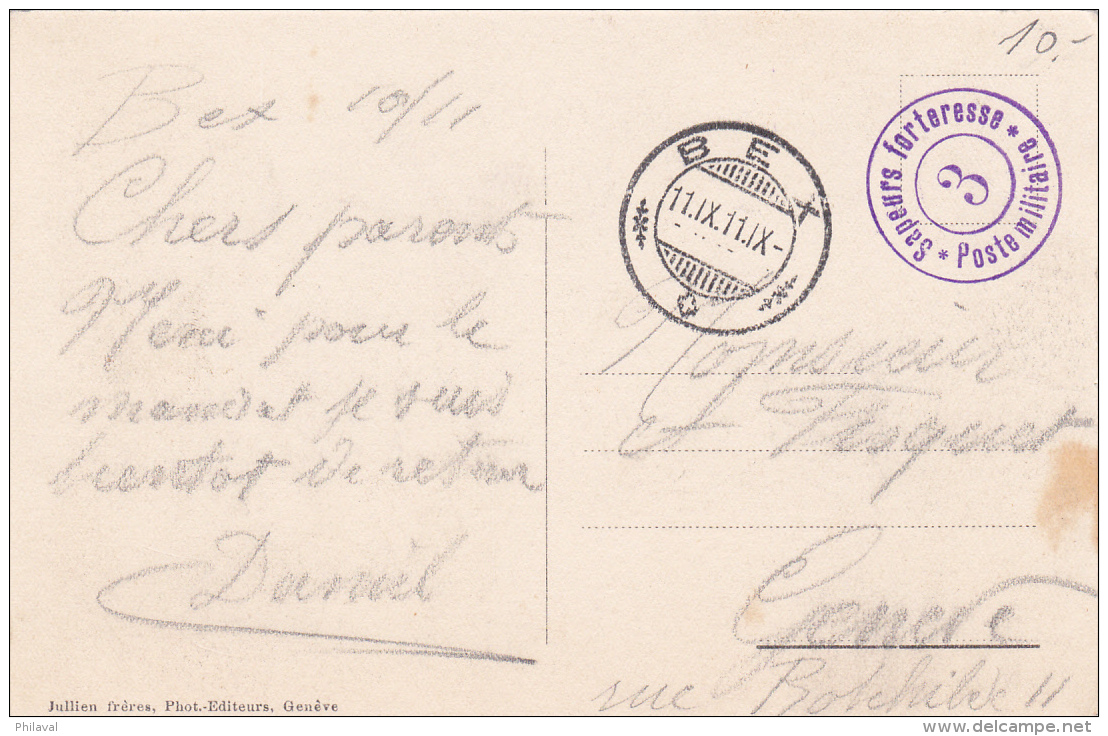 10.-
Bex 10/11
Chers parents
Merci pour le
mandat je suis
bientot de retour
Daniel
BEX
11.IX.11.IX-
Sapeurs forteresse * Poste militaire *
3
Monsieur
et Fisquet
Geneve
rue 11
Jullien frères, Phot.-Editeurs, Genève
Philaval
www.delcampe.net